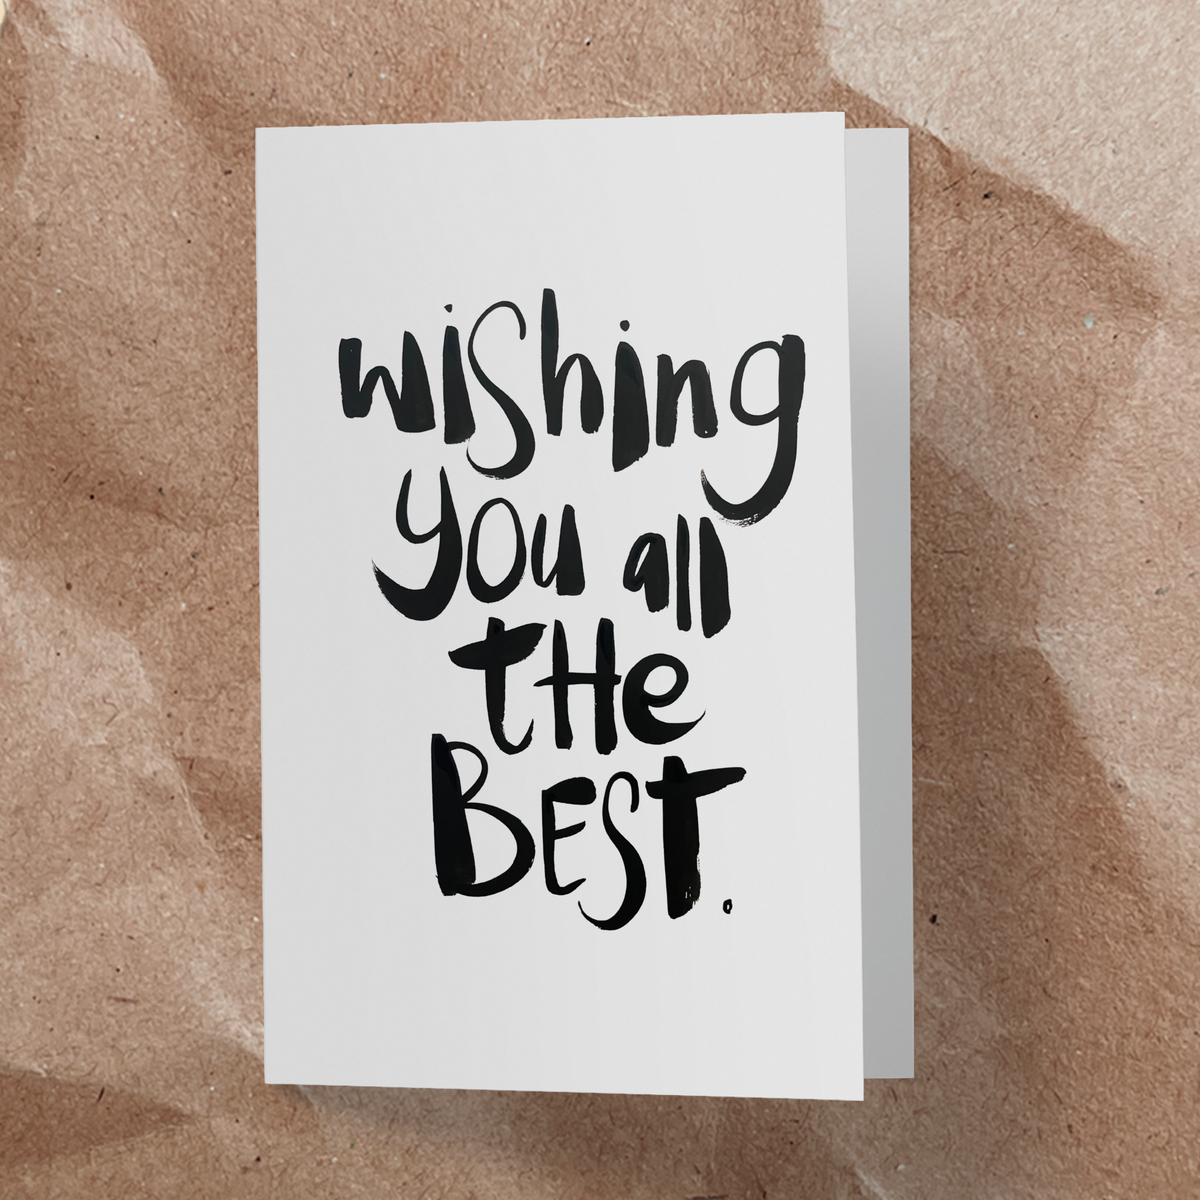 wishing
you all
tHe
BEST.